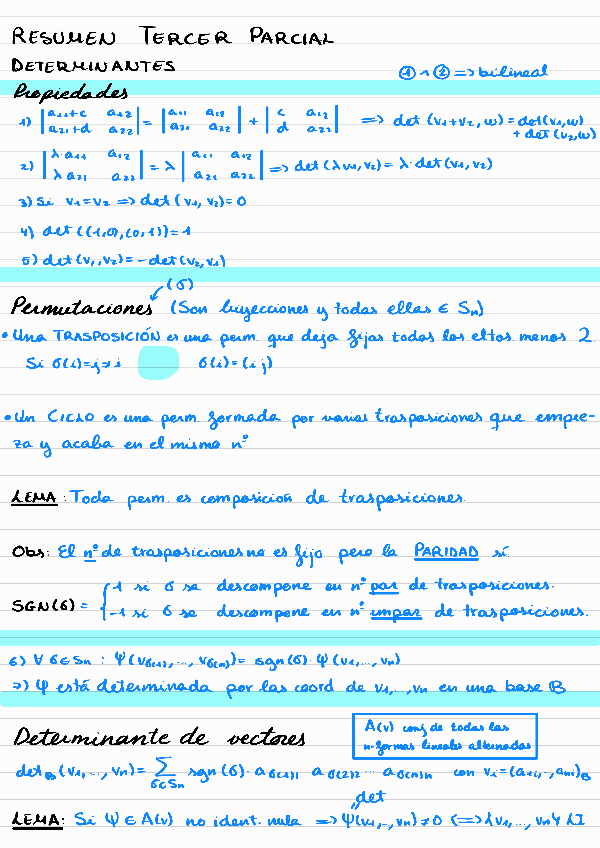 RESUMEN TERCER PARCIAL
DETERMINANTES
① ∧ ② => bilineal
Propiedades
1) |a₁₁+c a₁₂; a₂₁+d a₂₂| = |a₁₁ a₁₂; a₂₁ a₂₂| + |c a₁₂; d a₂₂| => det (v₁+v₂, w) = det(v₁,w) + det (v₂,w)
2) |λ·a₁₁ a₁₂; λ a₂₁ a₂₂| = λ |a₁₁ a₁₂; a₂₁ a₂₂| => det (λv₁, v₂) = λ·det (v₁, v₂)
3) Si v₁=v₂ => det (v₁, v₂)=0
4) det ((1,0), (0,1))=1
5) det(v₁,v₂)=-det(v₂,v₁)
(σ)
Permutaciones (Son biyecciones y todas ellas ∈ Sₙ)
• Una TRASPOSICIÓN es una perm. que deja fijas todos los eltos. menos 2
Si σ(i)=j≠i σ(i)=(i j)
• Un CICLO es una perm. formada por varias trasposiciones que empie-
za y acaba en el mismo nº
LEMA: Toda perm. es composición de trasposiciones.
Obs: El nº de trasposiciones no es fijo pero la PARIDAD sí
SGN(σ) = { 1 si σ se descompone en nº par de trasposiciones.
-1 si σ se descompone en nº impar de trasposiciones.
6) ∀ σ∈Sₙ : Ψ(v_σ(1),..., v_σ(n))= sgn(σ)·Ψ(v₁,..., vₙ)
7) Ψ está determinada por las coord de v₁,...,vₙ en una base B
A(v) conj de todas las
n-formas lineales alternadas
Determinante de vectores
det_B (v₁,..., vₙ)= ∑_σ∈Sₙ sgn (σ)· a_σ(1)1 a_σ(2)2 ... a_σ(n)n con vᵢ=(a₁ᵢ,..,aₙᵢ)_B
det
LEMA: Si Ψ ∈ A(v) no ident. nula => Ψ(v₁,..,vₙ) ≠ 0 <=> {v₁,..., vₙ} LI